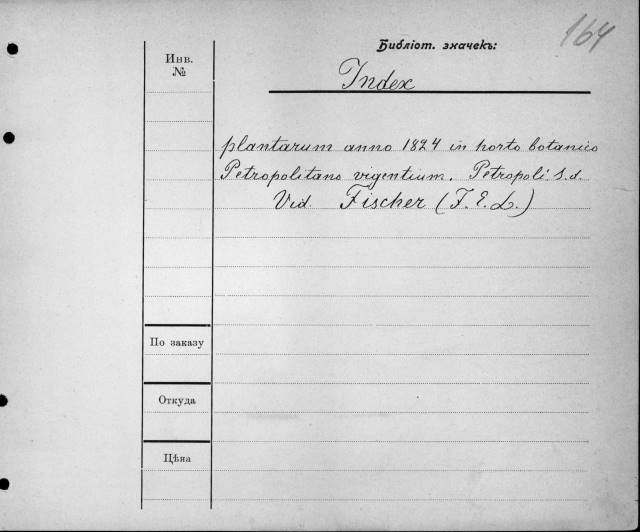 164
Библіот. значекъ:
Инв.
№
Index
plantarum anno 1824 in horto botanico
Petropolitano vigentium. Petropoli s.d.
Vid. Fischer (F. E. L.)
По заказу
Откуда
Цѣна